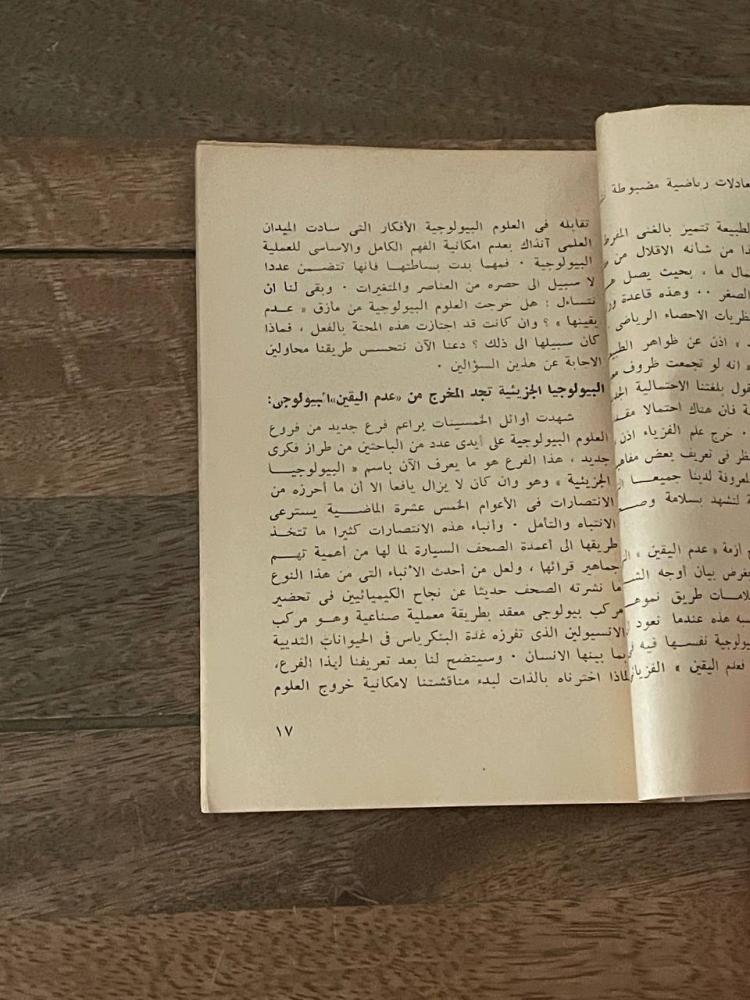 عادلات رياضية مضبوطة
لطبيعة تتميز بالغنى المفرط
ذا من شأنه الاقلال من
مال ما ، بحيث يصل
الصغر ٠٠ وهذه قاعدة
نظريات الاحصاء الرياضى
» اذن عن ظواهر
« انه لو تجمعت ظروف
قول بلغتنا الاحتمالية
ة فان هناك احتمالا
٠ خرج علم الفزياء اذن
نظر فى تعريف بعض
لمعروفة لدينا جميعا
ة لنشهد بسلامة
أزمة « عدم اليقين »
بغرض بيان أوجه
لامات طريق
به هذه عندما تعود
يولوجية نفسها فيه
فعدم اليقين » الفزيائى
تقابله فى العلوم البيولوجية الأفكار التى سادت الميدان
العلمى آنذاك بعدم امكانية الفهم الكامل والاساسى للعملية
البيولوجية ٠ فمهما بدت بساطتها فانها تتضمن عددا
لا سبيل الى حصره من العناصر والمتغيرات ٠ وبقى لنا ان
نتساءل : هل خرجت العلوم البيولوجية من مازق « عدم
يقينها » ؟ وان كانت قد اجتازت هذه المحنة بالفعل ، فماذا
كان سبيلها الى ذلك ؟ دعنا الآن نتحسس طريقنا محاولين
الاجابة عن هذين السؤالين ٠
البيولوجيا الجزيئية تجد المخرج من «عدم اليقين»البيولوجى:
شهدت أوائل الخمسينات براعم فرع جديد من فروع
العلوم البيولوجية على أيدى عدد من الباحثين من طراز فكرى
جديد ، هذا الفرع هو ما يعرف الآن باسم « البيولوجيا
الجزيئية » وهو وان كان لا يزال يافعا الا أن ما أحرزه من
الانتصارات فى الأعوام الخمس عشرة الماضية يسترعى
الانتباه والتأمل ٠ وأنباء هذه الانتصارات كثيرا ما تتخذ
طريقها الى أعمدة الصحف السيارة لما لها من أهمية تهم
جماهير قرائها ، ولعل من أحدث الأنباء التى من هذا النوع
ما نشرته الصحف حديثا عن نجاح الكيميائيين فى تحضير
مركب بيولوجى معقد بطريقة معملية صناعية وهو مركب
الانسيولين الذى تفرزه غدة البنكرياس فى الحيوانات الثديية
بما بينها الانسان ٠ وسيتضح لنا بعد تعريفنا لهذا الفرع،
لماذا اخترناه بالذات لبدء مناقشتنا لامكانية خروج العلوم
١٧